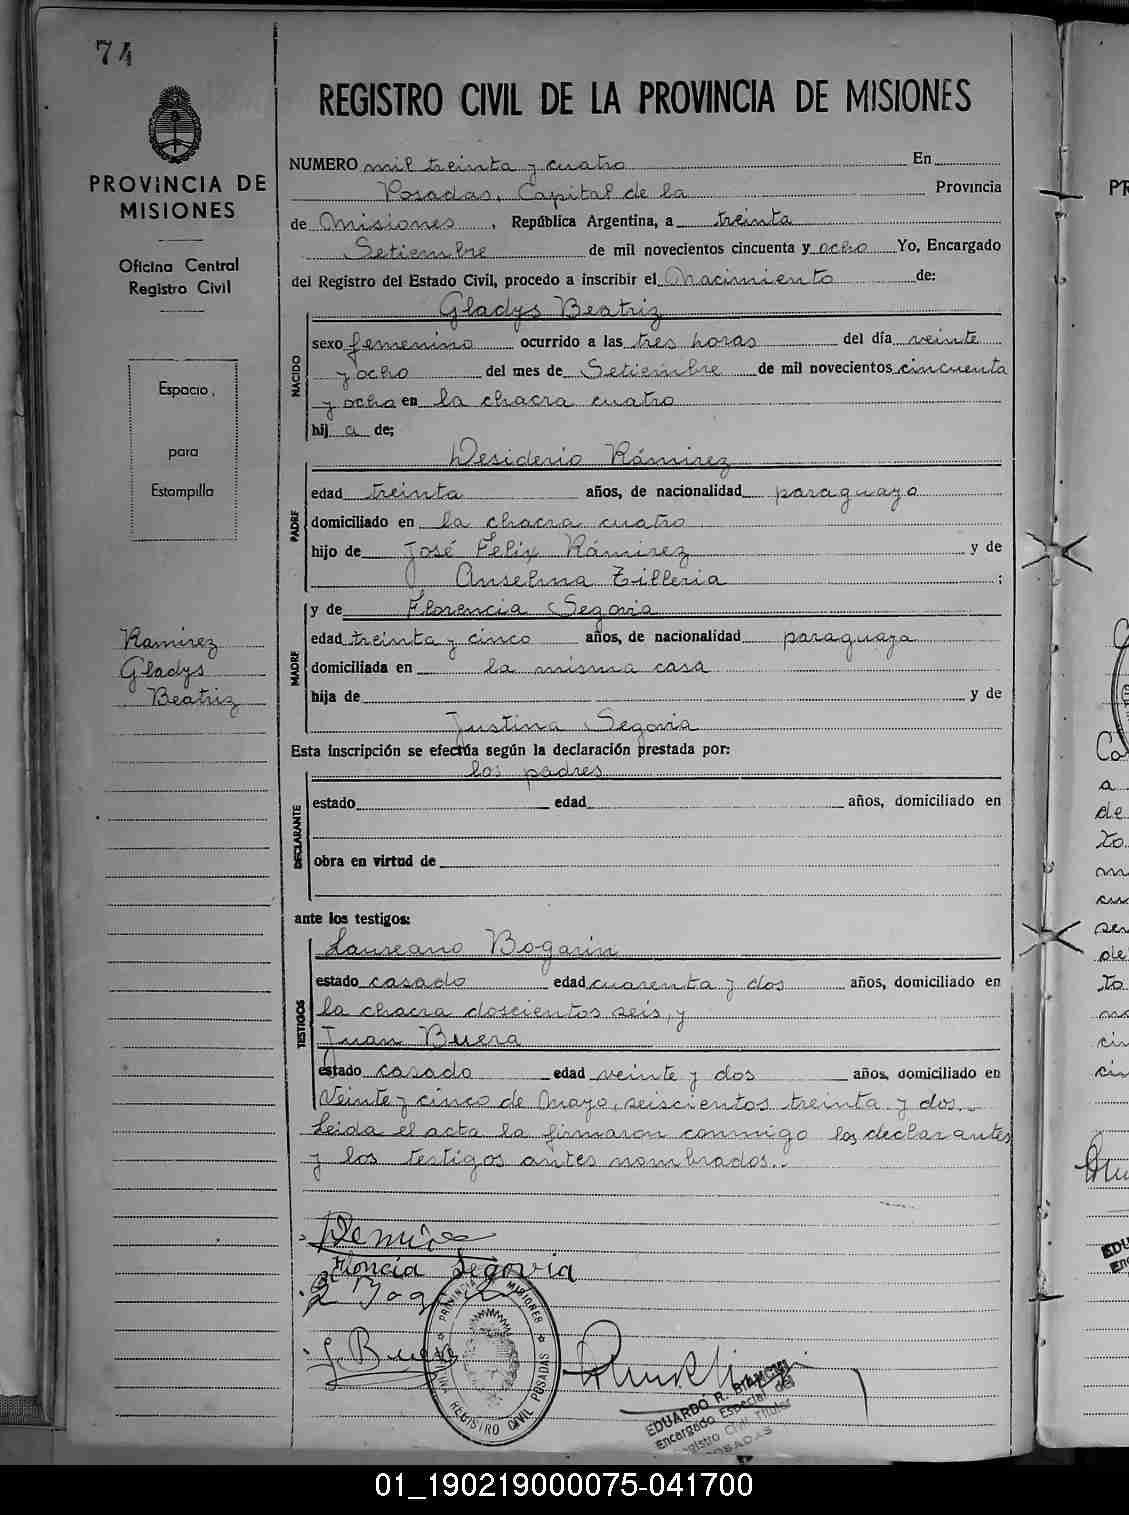 74
PROVINCIA DE
MISIONES
Oficina Central
Registro Civil
Espacio,
para
Estampilla
Ramirez
Gladys
Beatriz
REGISTRO CIVIL DE LA PROVINCIA DE MISIONES
NUMERO mil treinta y cuatro En
Posadas, Capital de la Provincia
de Misiones, República Argentina, a treinta
Setiembre de mil novecientos cincuenta y ocho Yo, Encargado
del Registro del Estado Civil, procedo a inscribir el Nacimiento de:
NACIDO
Gladys Beatriz
sexo femenino ocurrido a las tres horas del día veinte
y ocho del mes de Setiembre de mil novecientos cincuenta
y ocho en la chacra cuatro
hij a de;
PADRE
Desiderio Rámirez
edad treinta años, de nacionalidad paraguayo
domiciliado en la chacra cuatro
hijo de José Felix Rámirez y de
Anselma Zilleria ;
MADRE
y de Florencia Segovia
edad treinta y cinco años, de nacionalidad paraguaya
domiciliada en la misma casa
hija de y de
Justina Segovia
Esta inscripción se efectúa según la declaración prestada por:
los padres
DECLARANTE
estado edad años, domiciliado en
obra en virtud de
ante los testigos:
TESTIGOS
Laureano Bogarin
estado casado edad cuarenta y dos años, domiciliado en
la chacra doscientos seis, y
Juan Buera
estado casado edad veinte y dos años, domiciliado en
Veinte y cinco de Mayo, seiscientos treinta y dos.-
Leida el acta la firmaron conmigo los declarantes
y los testigos antes nombrados..
Floncia Segovia
J Buera
PROVINCIA MISIONES
REGISTRO CIVIL POSADAS
EDUARDO R. BIANCHI
Encargado Especial del
Registro Civil Titular
POSADAS
01_190219000075-041700